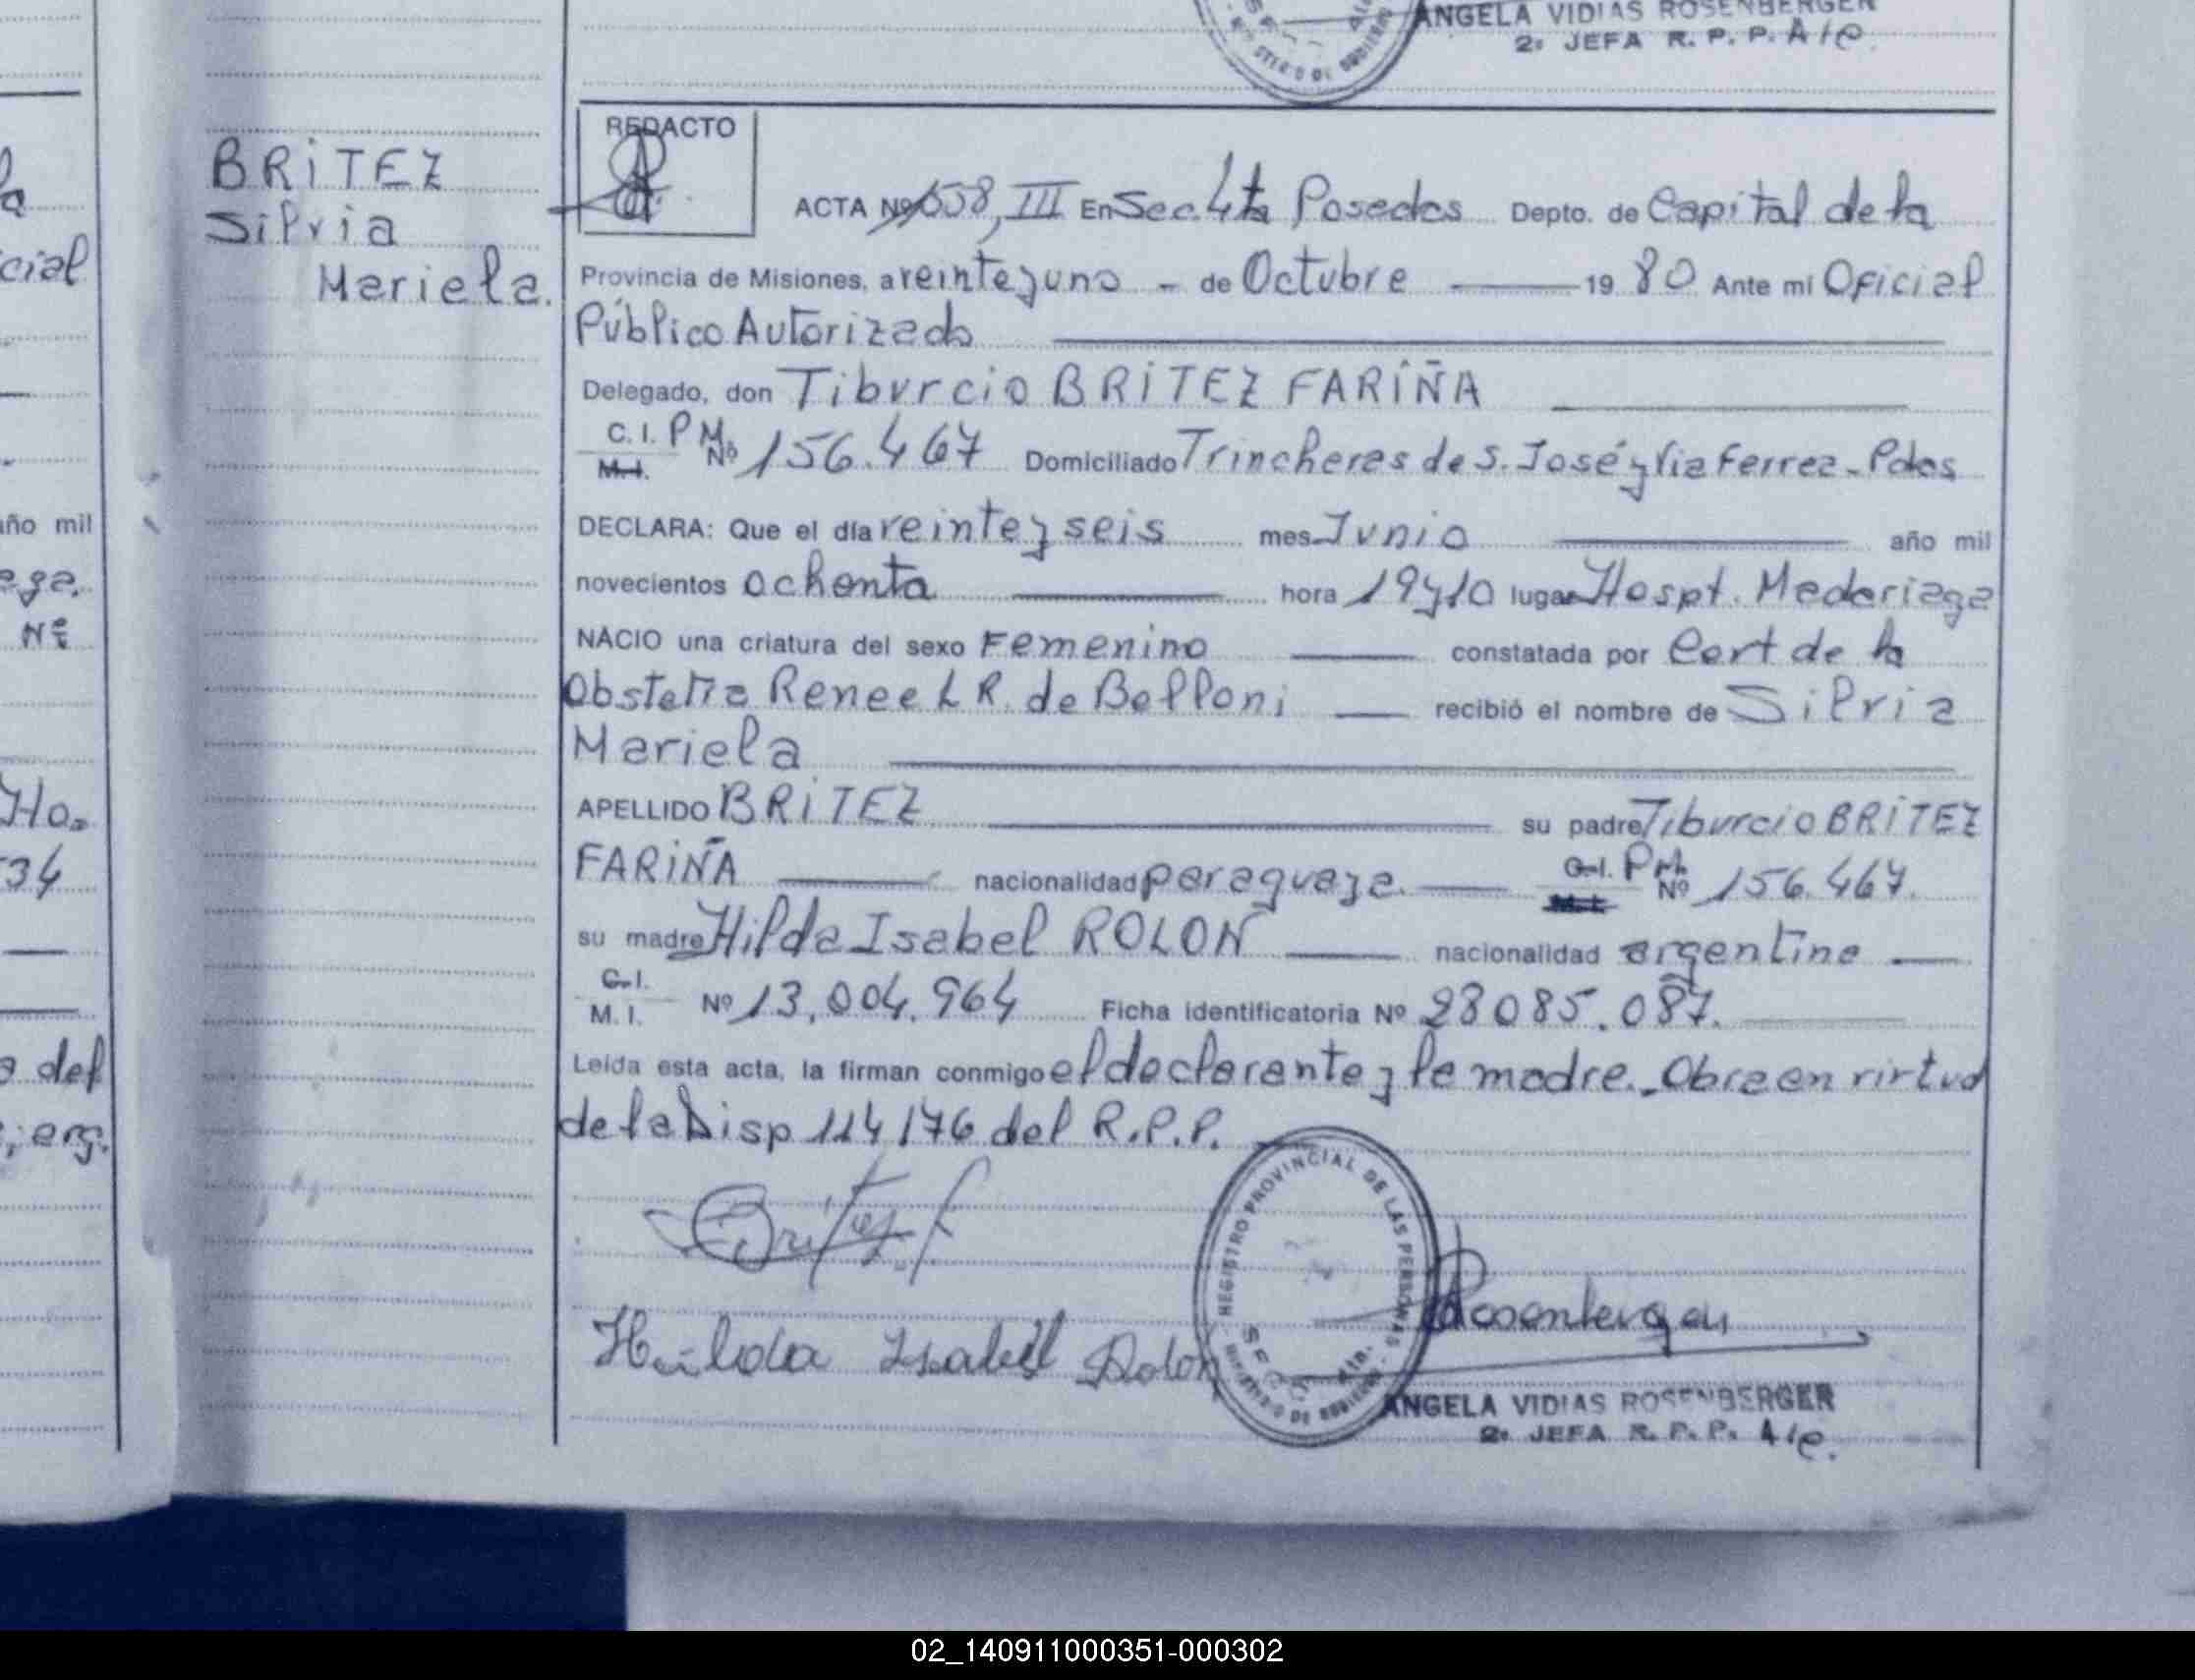 ANGELA VIDIAS ROSENBERGER
2ª JEFA R. P. P. A/c.
BRITEZ
Silvia
Mariela.
REDACTO
ACTA Nº 658, III En Sec 4ta Posadas Depto. de Capital de la
Provincia de Misiones, a veinte y uno - de Octubre 19 80 Ante mí Oficial
Público Autorizado
Delegado, don Tiburcio BRITEZ FARIÑA
C. I. P M.
M. I. Nº 156.467 Domiciliado Trincheras de S. José y Via Ferrea - Pdas
DECLARA: Que el día veinte y seis mes Junio año mil
novecientos ochenta hora 19 y 10 lugar Hospt. Madariaga
NACIO una criatura del sexo Femenino constatada por Cert de la
Obstetra Renee L R. de Belloni recibió el nombre de Silvia
Mariela
APELLIDO BRITEZ su padre Tiburcio BRITEZ
FARIÑA nacionalidad paraguaya. C. I. M. I. Nº 156.467.
su madre Hilda Isabel ROLON nacionalidad argentina
C. I.
M. I. Nº 13,004.964 Ficha identificatoria Nº 28085.087.
Leída esta acta, la firman conmigo el declarante y la madre. Obra en virtud
de la Disp 114/76 del R.P.P.
Britez f
REGISTRO PROVINCIAL DE LAS PERSONAS
MINISTERIO DE GOBIERNO
Hilda Isabel Rolon
Rosenberger
ANGELA VIDIAS ROSENBERGER
2ª JEFA R. P. P. A/c.
cial
año mil
Nº
Ho.
34
del
arg.
02_140911000351-000302